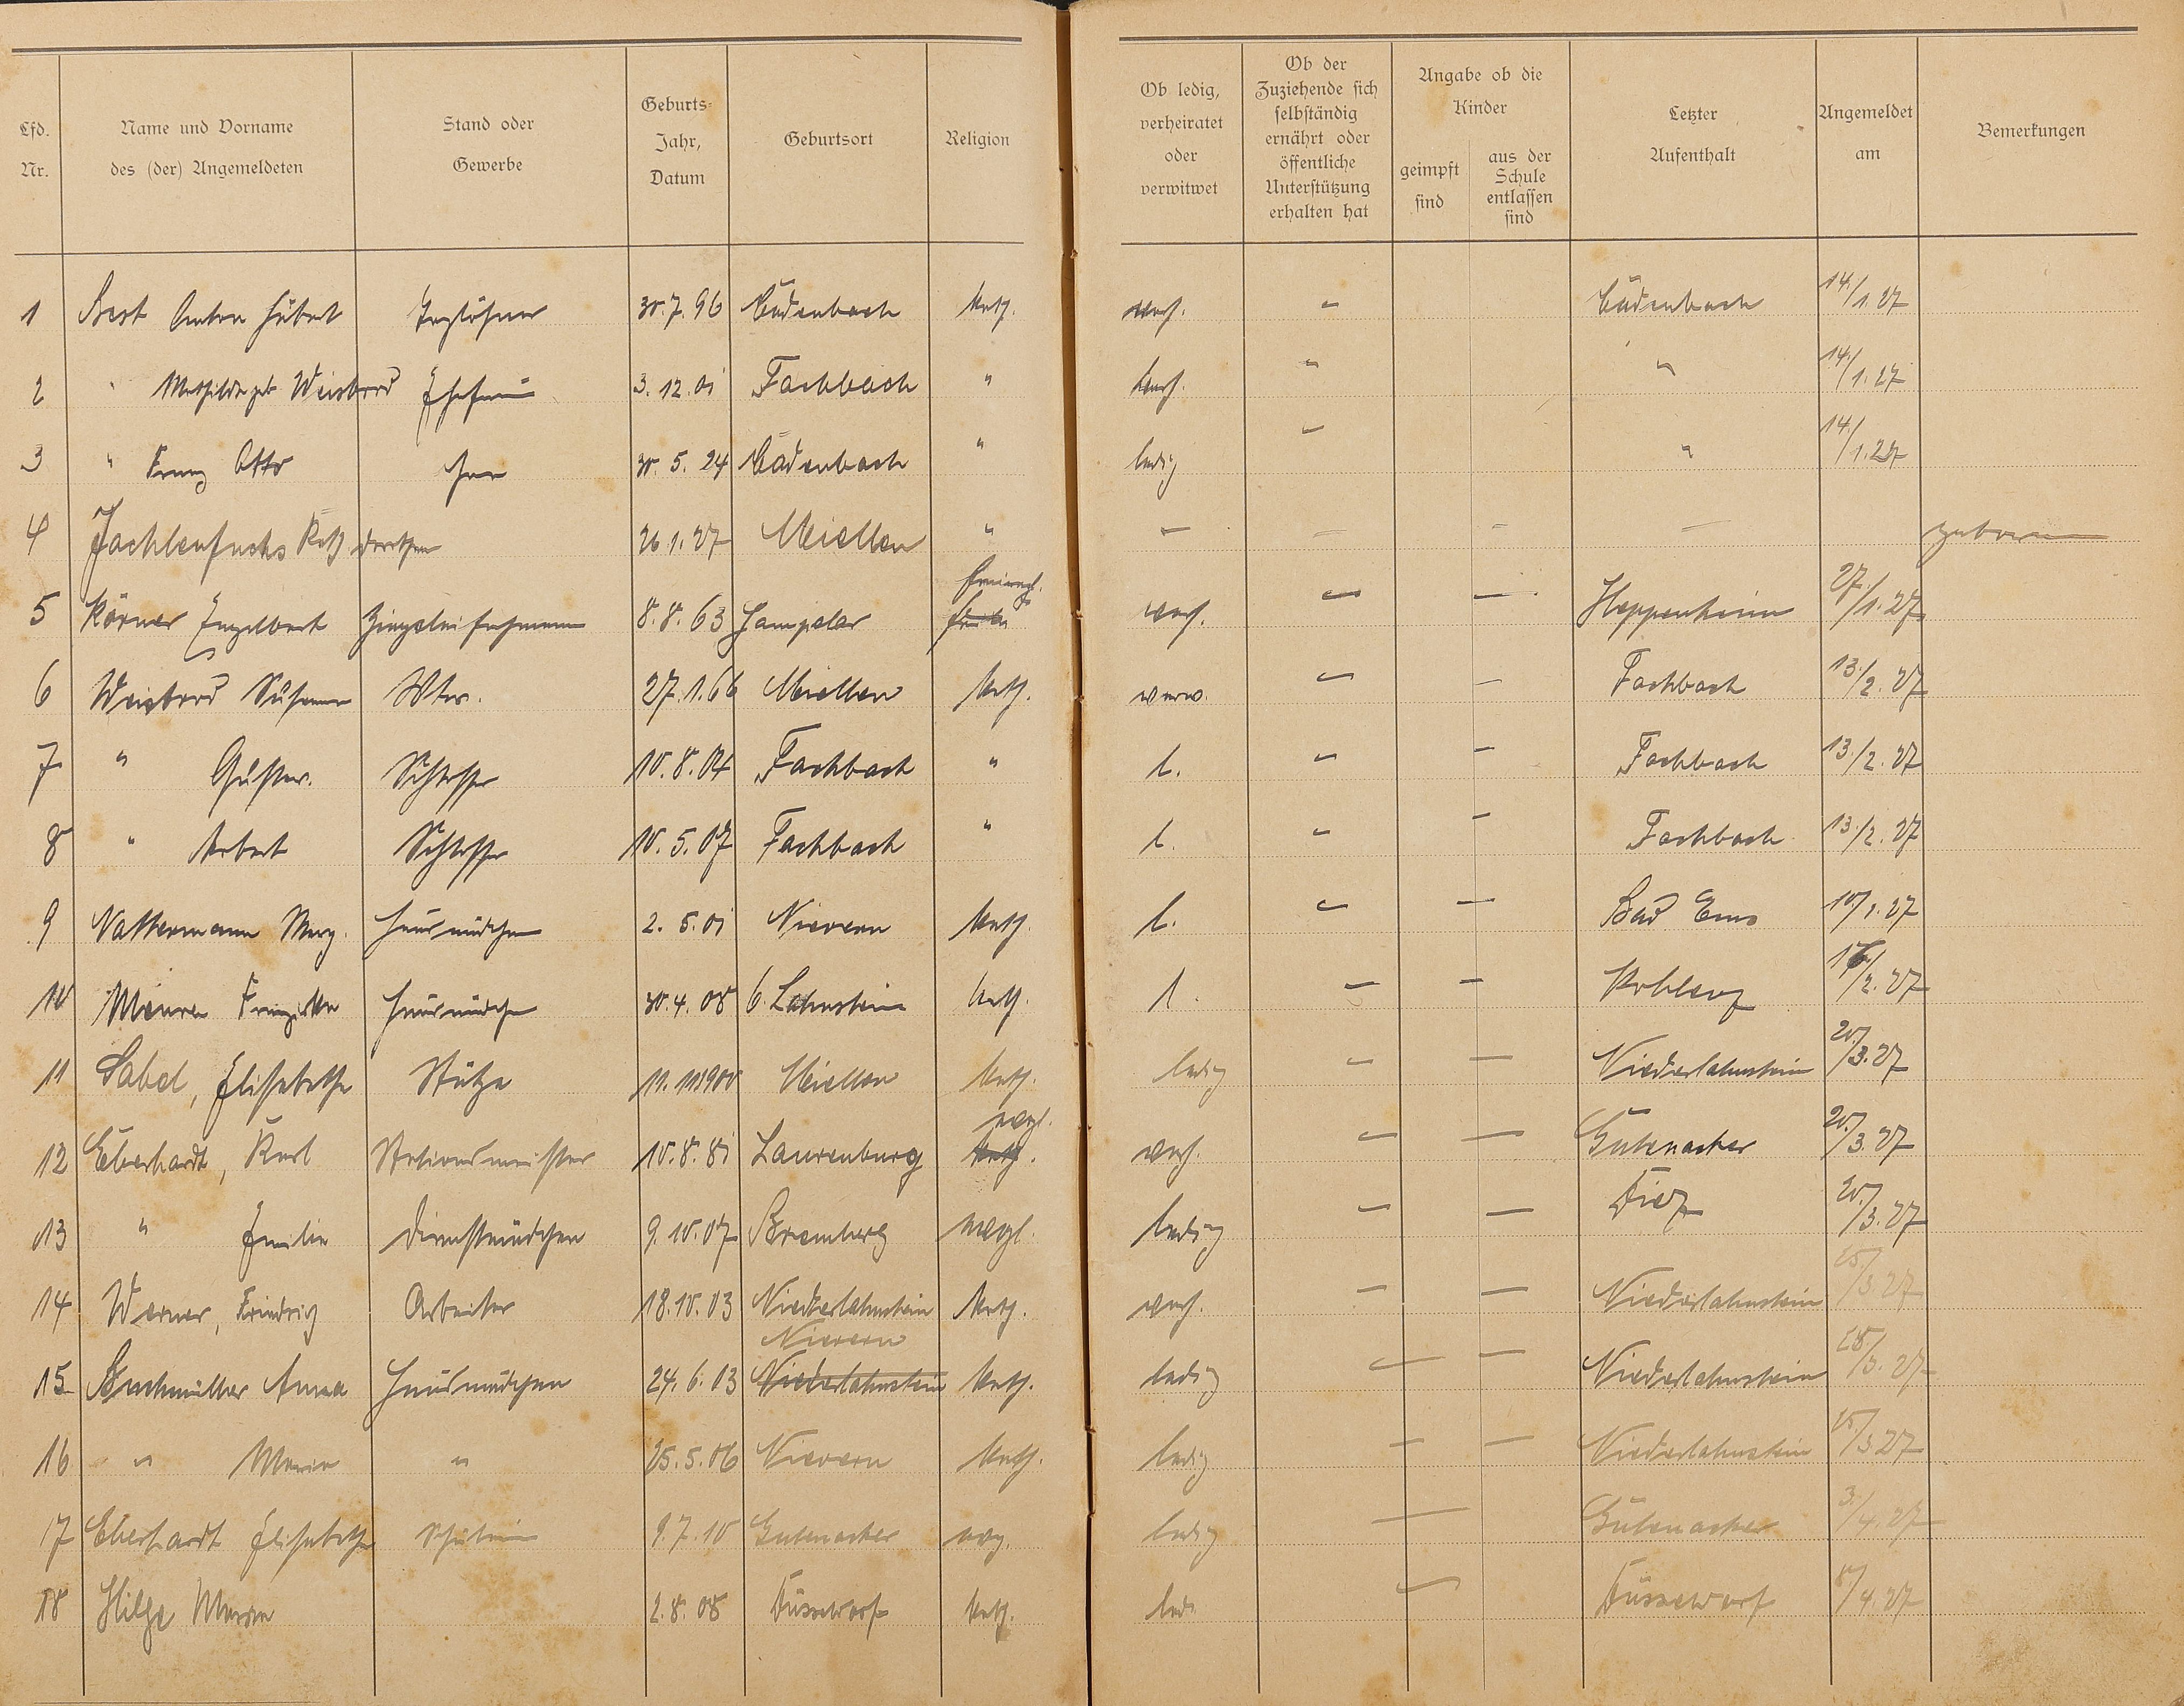 Lfd. Nr. | Name und Vorname des (der) Angemeldeten | Stand oder Gewerbe | Geburts-Jahr, Datum | Geburtsort | Religion | Ob ledig, verheiratet oder verwitwet | Ob der Zuziehende sich selbständig ernährt oder öffentliche Unterstützung erhalten hat | Angabe ob die Kinder geimpft sind | aus der Schule entlassen sind | Letzter Aufenthalt | Angemeldet am | Bemerkungen
1 Best Anton Hubert Taglöhner 30.7.96 Cadenbach kath. verh. – Cadenbach 14./1.27
2 " Mathilde geb Weisbrod Ehefrau 3.12.01 Fachbach " verh. – " 14./1.27
3 " Franz Otto 30.5.24 Cadenbach " ledig – " 14./1.27
4 Jachlenfuchs 26.1.27 Miellen " – – – – geboren
5 Körner Engelbert 8.8.63 verh. – – Heppenheim 27./1.27
6 Weisbrod Susanna Wtw. 27.1.66 Miellen kath. verw. – – Fachbach 13./2.27
7 " Gustav. Schlosser 10.8.04 Fachbach " l. – – Fachbach 13./2.27
8 " Schlosser 10.5.07 Fachbach " l. – – Fachbach 13./2.27
9 Nattermann Marg. Hausmädchen 2.5.01 Nievern kath. l. – – Bad Ems 10/1.27
10 Meurer Franziska Hausmädchen 30.4.08 O. Lahnstein kath. l. – – Koblenz /2.27
11 Sabel, Elisabetha Stütze 11.11.1900 Miellen kath. ledig – – Niederlahnstein 20./3.27
12 Eberhardt, Karl Stationsmeister 10.8.81 Laurenburg evgl. kath. verh. – – Gutenacker 20./3.27
13 " Emilie Dienstmädchen 9.10.07 Bremberg evgl. ledig – – Diez 20./3.27
14 Werner, Friedrich Arbeiter 18.10.03 Niederlahnstein kath. verh. – – Niederlahnstein 25./3.27
Nievern
15 Buchmüller Anna Hausmädchen 24.6.03 Niederlahnstein kath. ledig – – Niederlahnstein /3.27
16 " Maria " 25.5.06 Nievern kath. ledig – – Niederlahnstein /3 27
17 Eberhardt Elisabetha Schülerin 9.7.10 Gutenacker evg. ledig – Gutenacker 3./4.27
18 Hilge Maria 2.8.08 Düsseldorf kath. led. – Düsseldorf /4.27